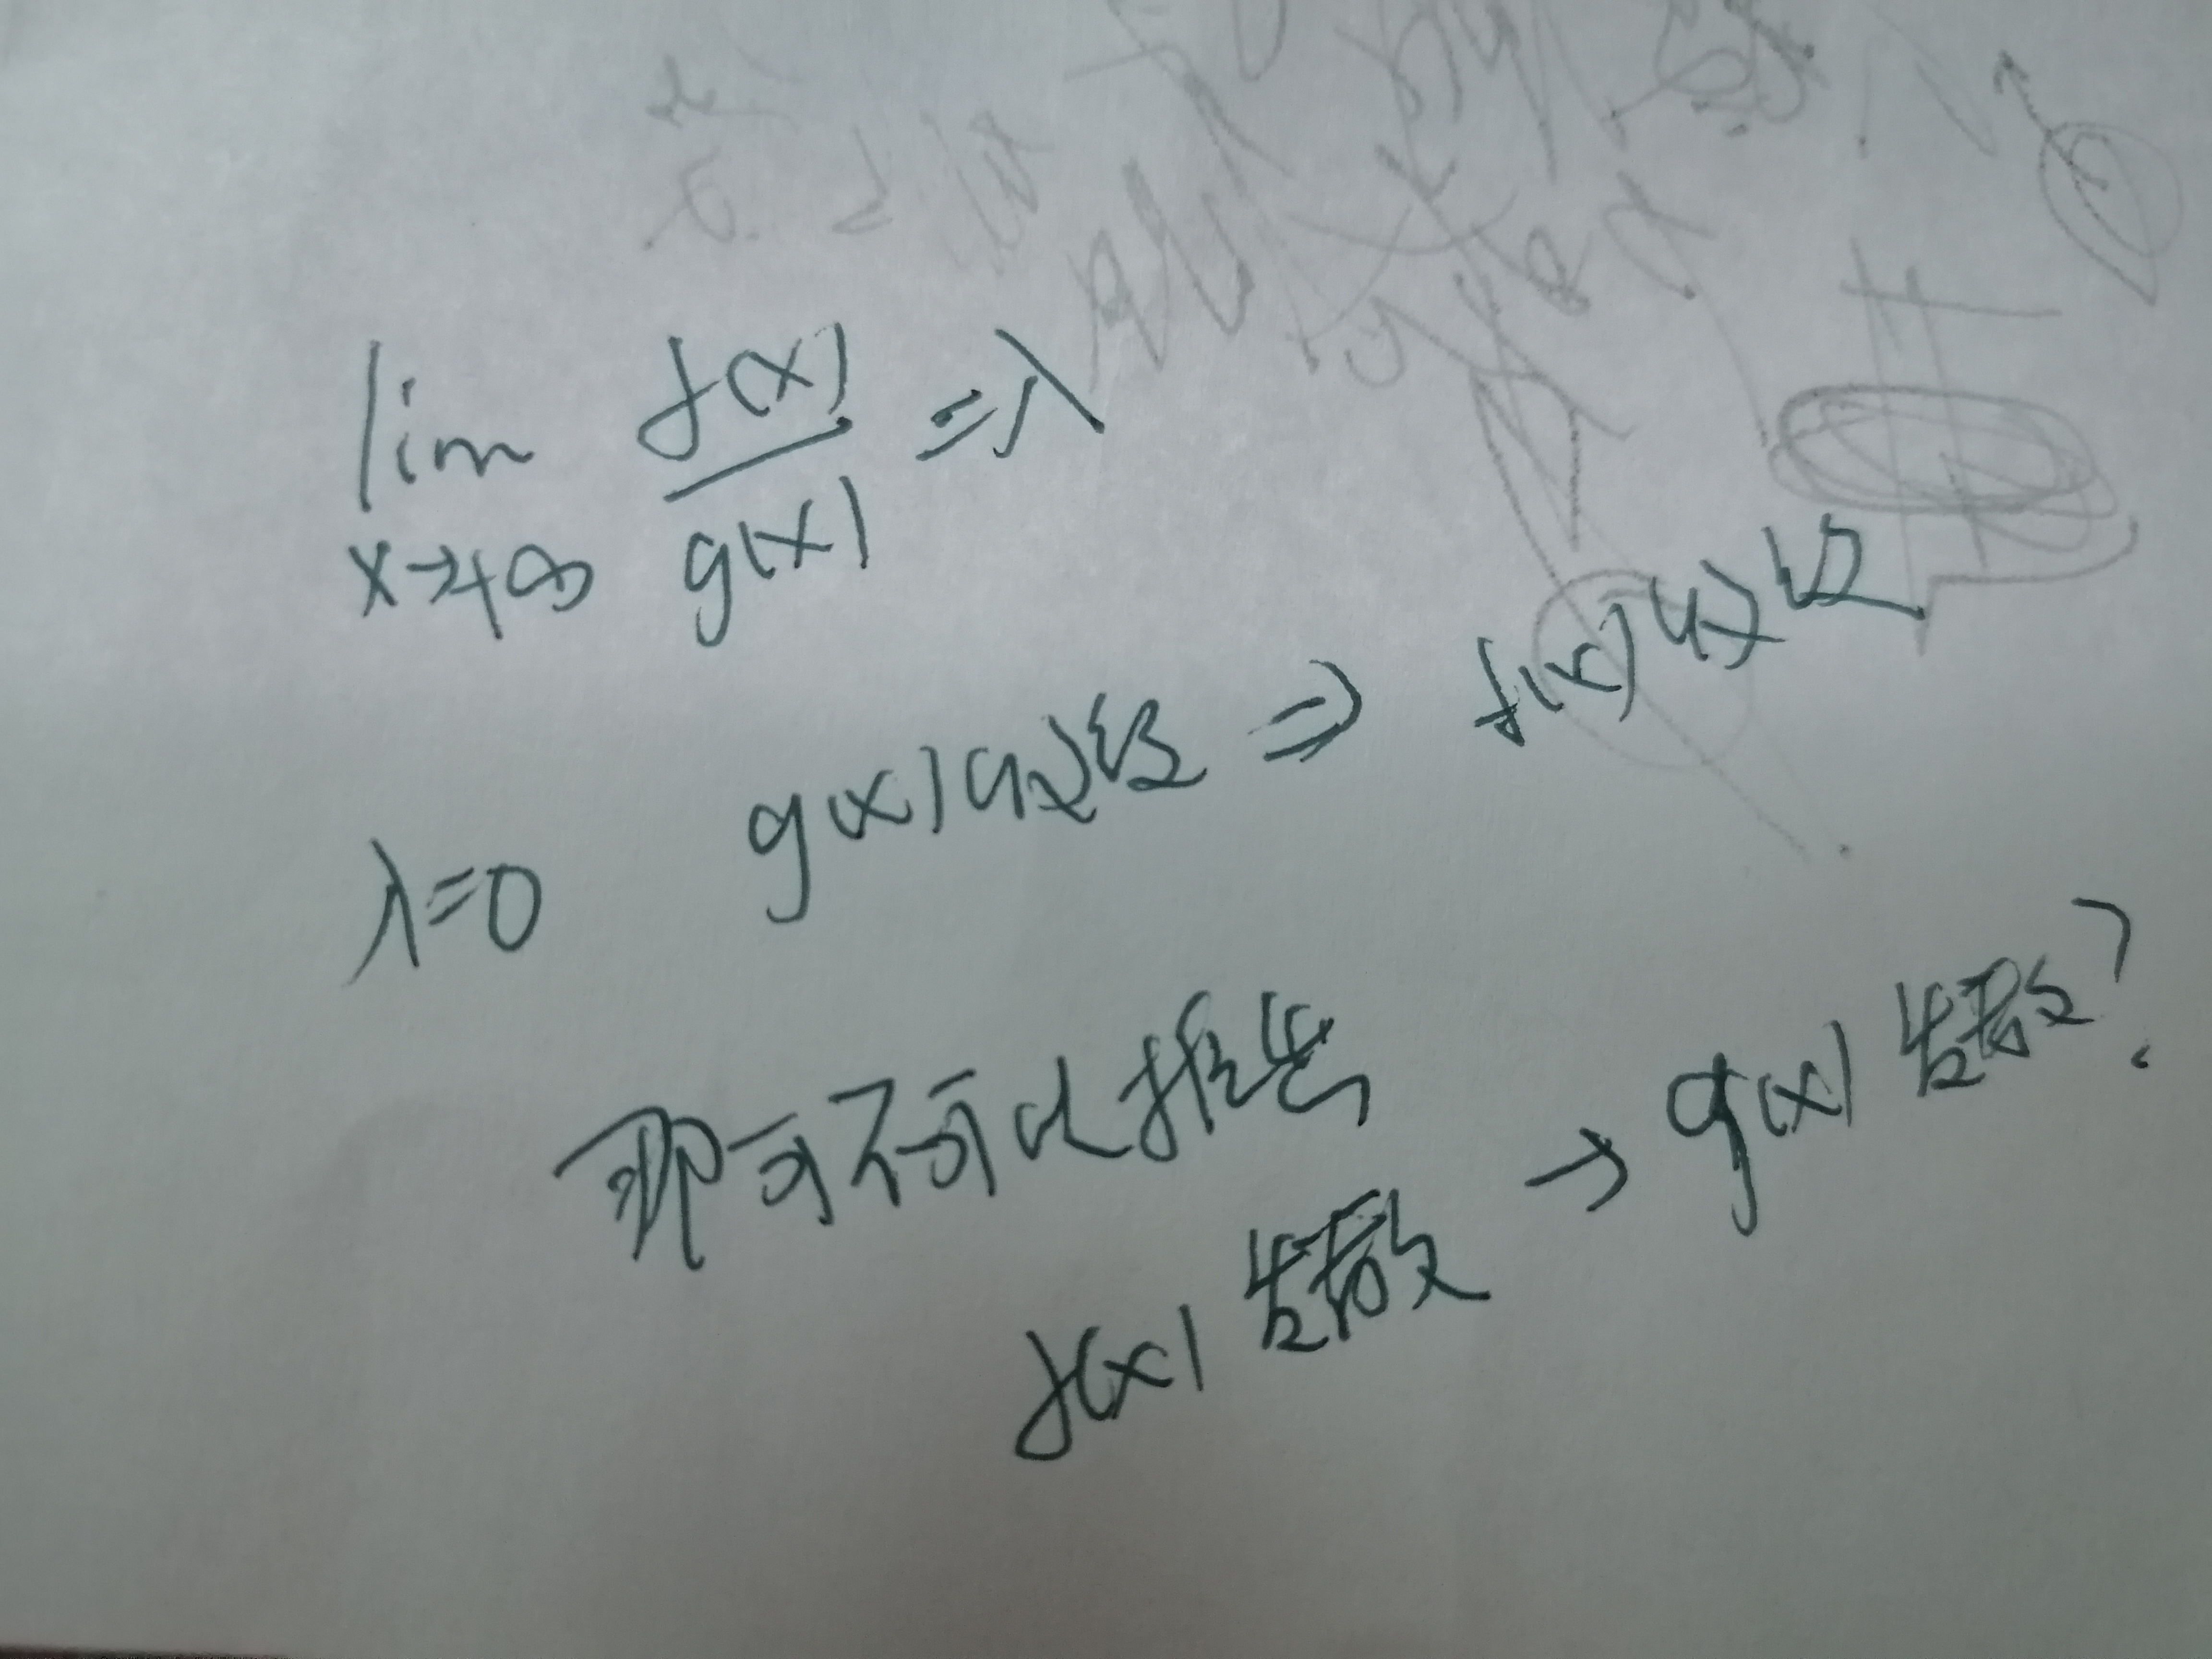 lim f(x)/g(x) = λ
x→+∞
λ=0 g(x)收敛 ⇒ f(x)收敛
那可不可以推出
f(x)发散 → g(x)发散?